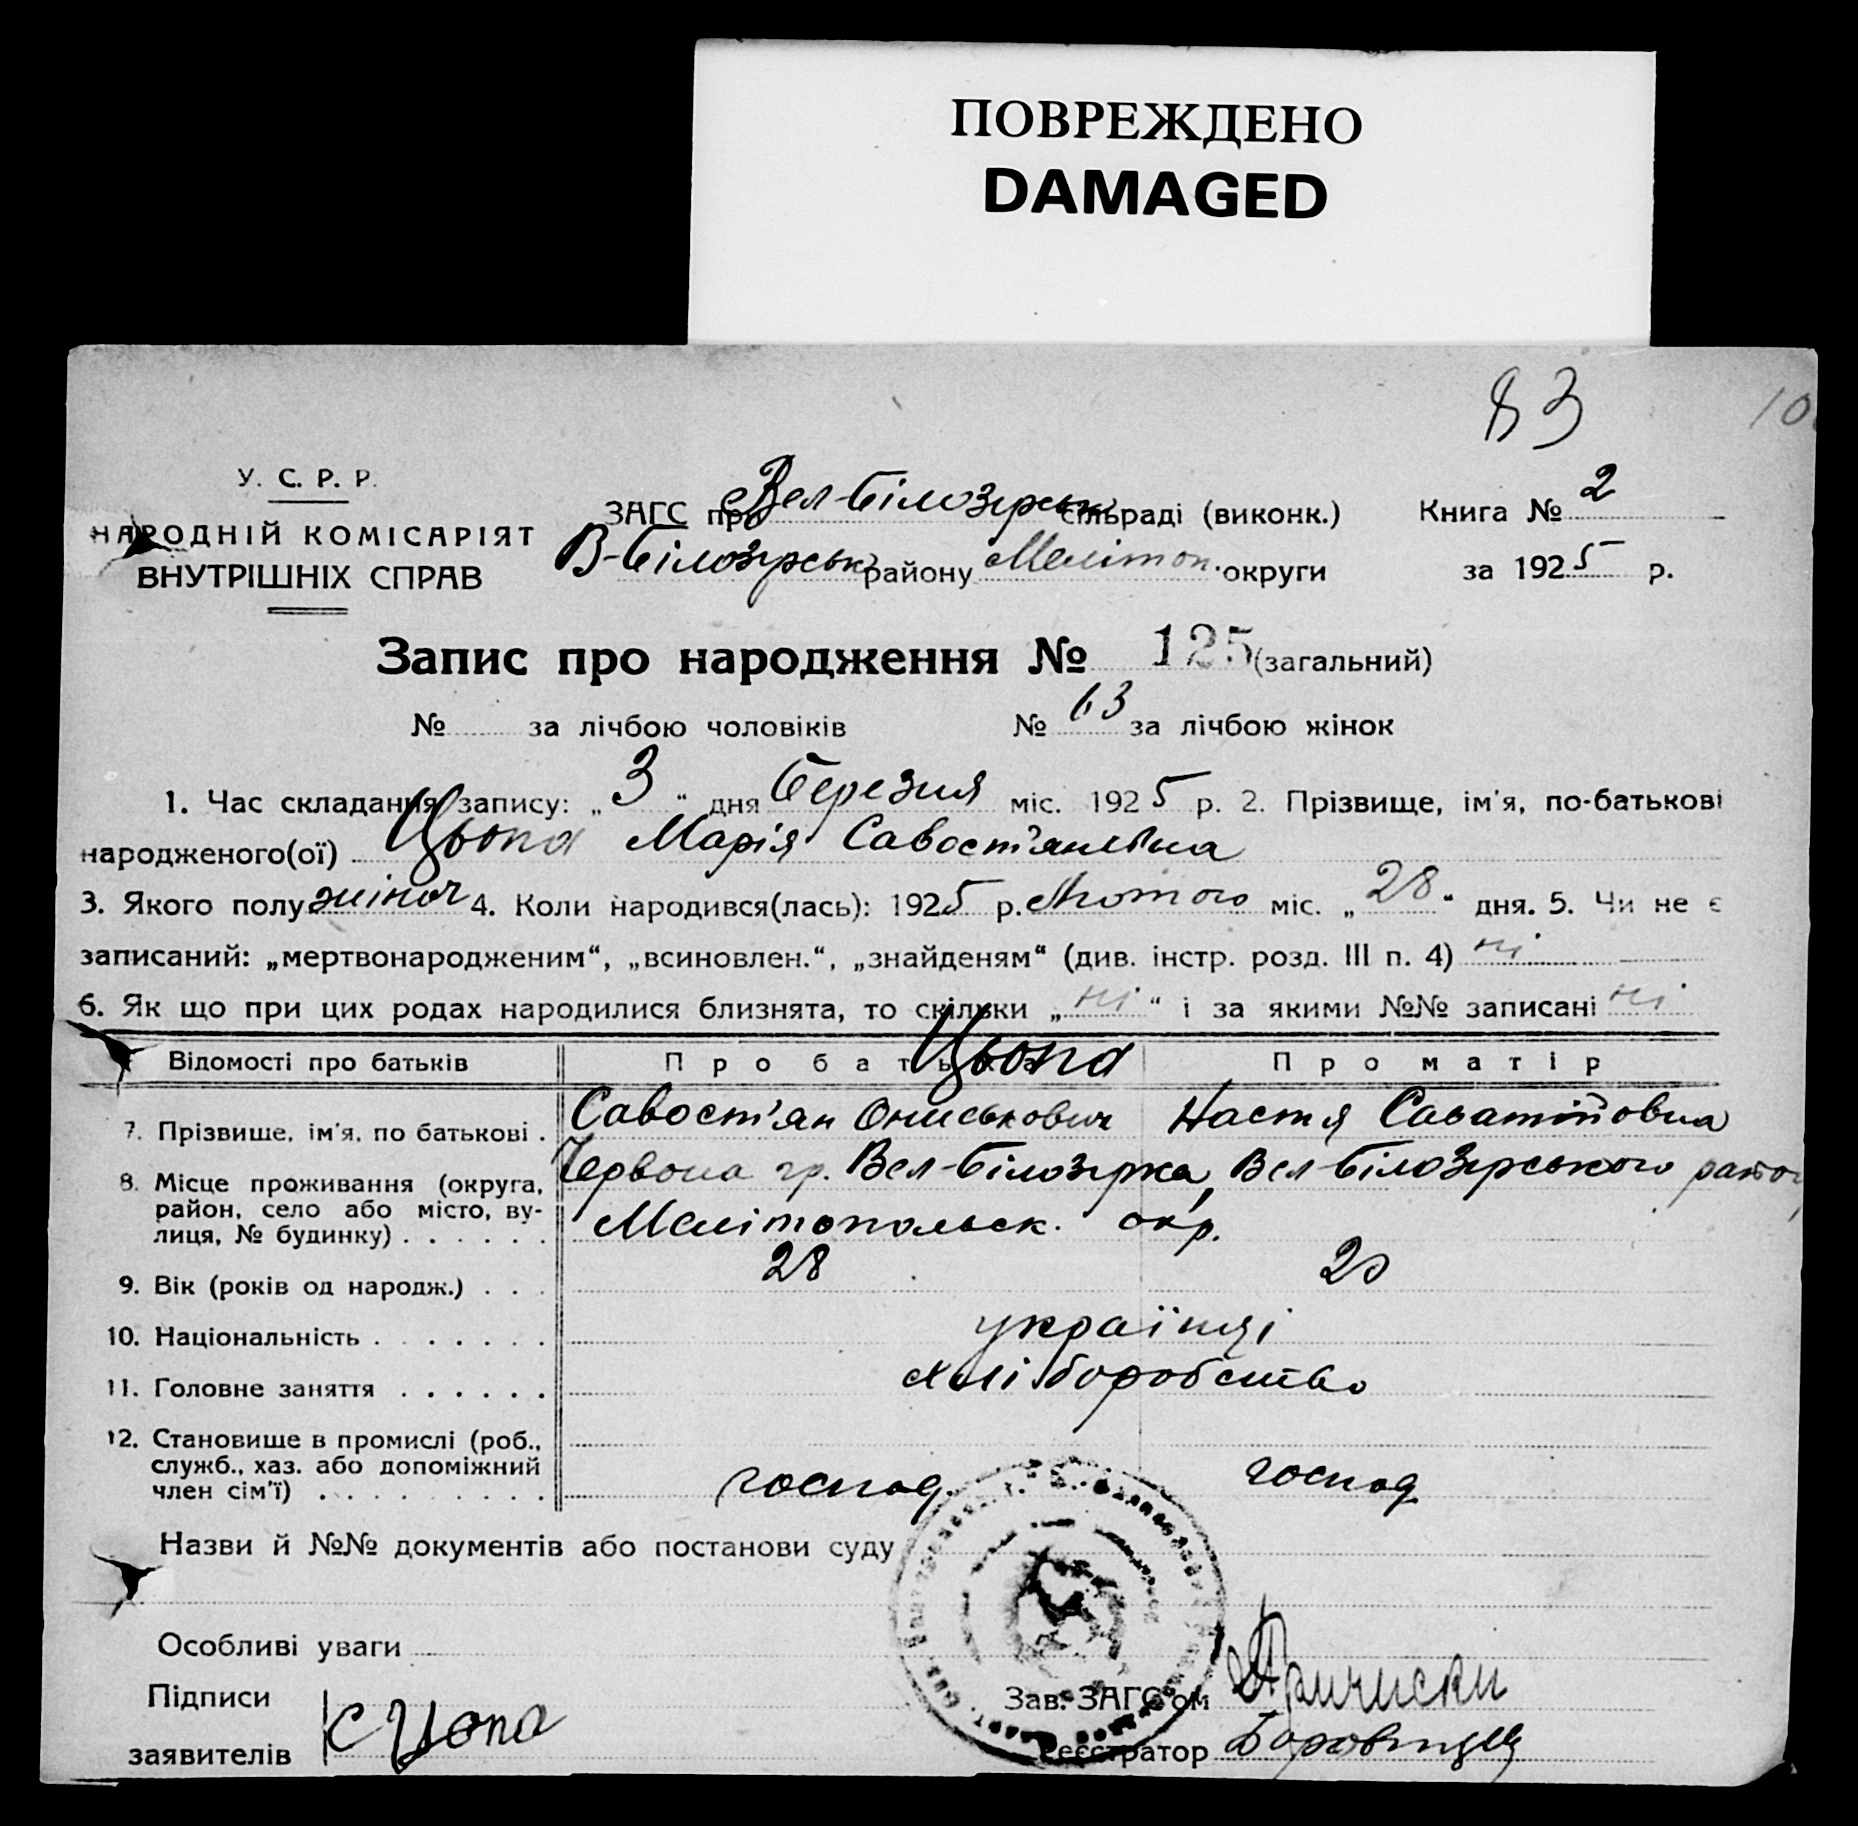 ПОВРЕЖДЕНО
DAMAGED
83
10
У. С. Р. Р.
НАРОДНІЙ КОМІСАРІЯТ
ВНУТРІШНІХ СПРАВ
ЗАГС при Вел-Білозірськ сільраді (виконк.) Книга № 2
В-Білозірськ району Мелітоп. округи за 1925 р.
Запис про народження № 125 (загальний)
№ за лічбою чоловіків № 63 за лічбою жінок
1. Час складання запису: „3“ дня березня міс. 1925 р. 2. Прізвище, ім'я, по-батькові
народженого(ої) Цьопа Марія Савост'янівна
3. Якого полу жіноч 4. Коли народився(лась): 1925 р. Лютого міс. „28“ дня. 5. Чи не є
записаний: „мертвонародженим“, „всиновлен.“, „знайденям“ (див. інстр. розд. III п. 4) ні
6. Як що при цих родах народилися близнята, то скільки „ні“ і за якими №№ записані ні
Відомості про батьків Про батька Про матір
Цьопа
7. Прізвище, ім'я, по батькові . Савост'ян Ониськович Настя Саватіївна
8. Місце проживання (округа, район, село або місто, вулиця, № будинку) . . . . . . Червона гр. Вел-Білозірка, Вел-Білозірського району
Мелітопольськ. окр.
9. Вік (років од народж.) . . . 28 20
10. Національність . . . . . . . українці
11. Головне заняття . . . . . . хліборобство
12. Становище в промислі (роб., служб., хаз. або допоміжний член сім'ї) . . . . . . . . . господ. господ
Назви й №№ документів або постанови суду
Особливі уваги
Підписи
заявителів С Цопа
Зав. ЗАГС'ом
Реєстратор